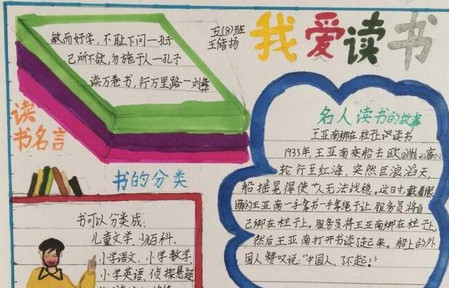 我爱读书
五(8)班
敏而好学，不耻下问—孔子
己所不欲，勿施于人—孔子
读万卷书，行万里路—刘彝
读书名言
书的分类
书可以分类成：
儿童文学、少百科、
小学语文、小学数学、
小学英语、侦探悬疑
名人读书的故事
王亚南绑在柱子上读书
1933年，王亚南乘船去欧洲，客
轮行至红海，突然巨浪滔天，
船摇晃得使人无法站稳，这时，戴着眼
镜的王亚南一手拿书一手拿绳子让服务员将自
己绑在柱子上，服务员将王亚南绑在柱子上，
然后王亚南打开书读起来，船上的外
国人赞叹说："中国人，了不起！"